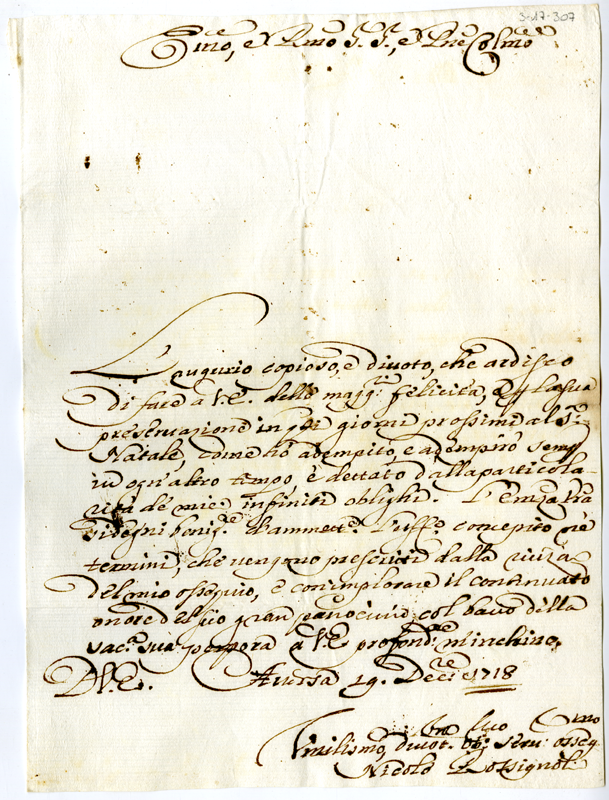 3-17-307
Emo, e Rmo S. S.r, e Pne Colmo
L'augurio copioso, e divoto, che ardisco
di fare a V.E. delle magg.ri felicità, e lunga
preservazione in q̃sti giorni prossimi al S.
Natale, come hò adempito, e adempirò semp.
in ogn'altro tempo, è dettato dalla particola-
rità de miei infiniti oblighi. L'Emza Vra
si degni benig.te d'ammett.e l'uff.o concepito nè
termini, che vengono prescritti dalla
del mio ossequio, e contimplorare il continuato
onore del suo gran patrocinio col bacio della
sac.a sua porpora à V.E. profond.te m'inchino.
D.V.E. Aversa 19. Dec.re 1718
Umilismo, divot. obg. serv. osseq.
Nicolò Rossignoli